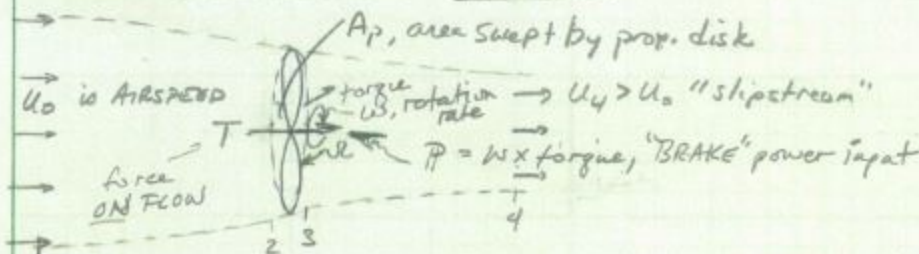 Ap, area swept by prop. disk
U0 is AIRSPEED
torque
ω, rotation rate
→ U4 > U0 "slipstream"
T
R
P = ω x torque, "BRAKE" power input
force
ON FLOW
2 3
4